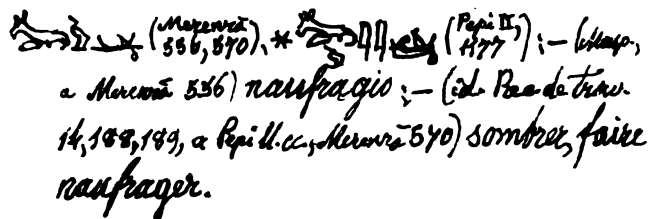 (Merenrâ 336, 570), * (Pepi II, 1177) :— (Masp.,
a Merenrâ 336) naufragio :— (id. Rec. de trav.
14, 188, 189, a Pepi II. cc., Merenrâ 570) sombrer, faire
naufrager.